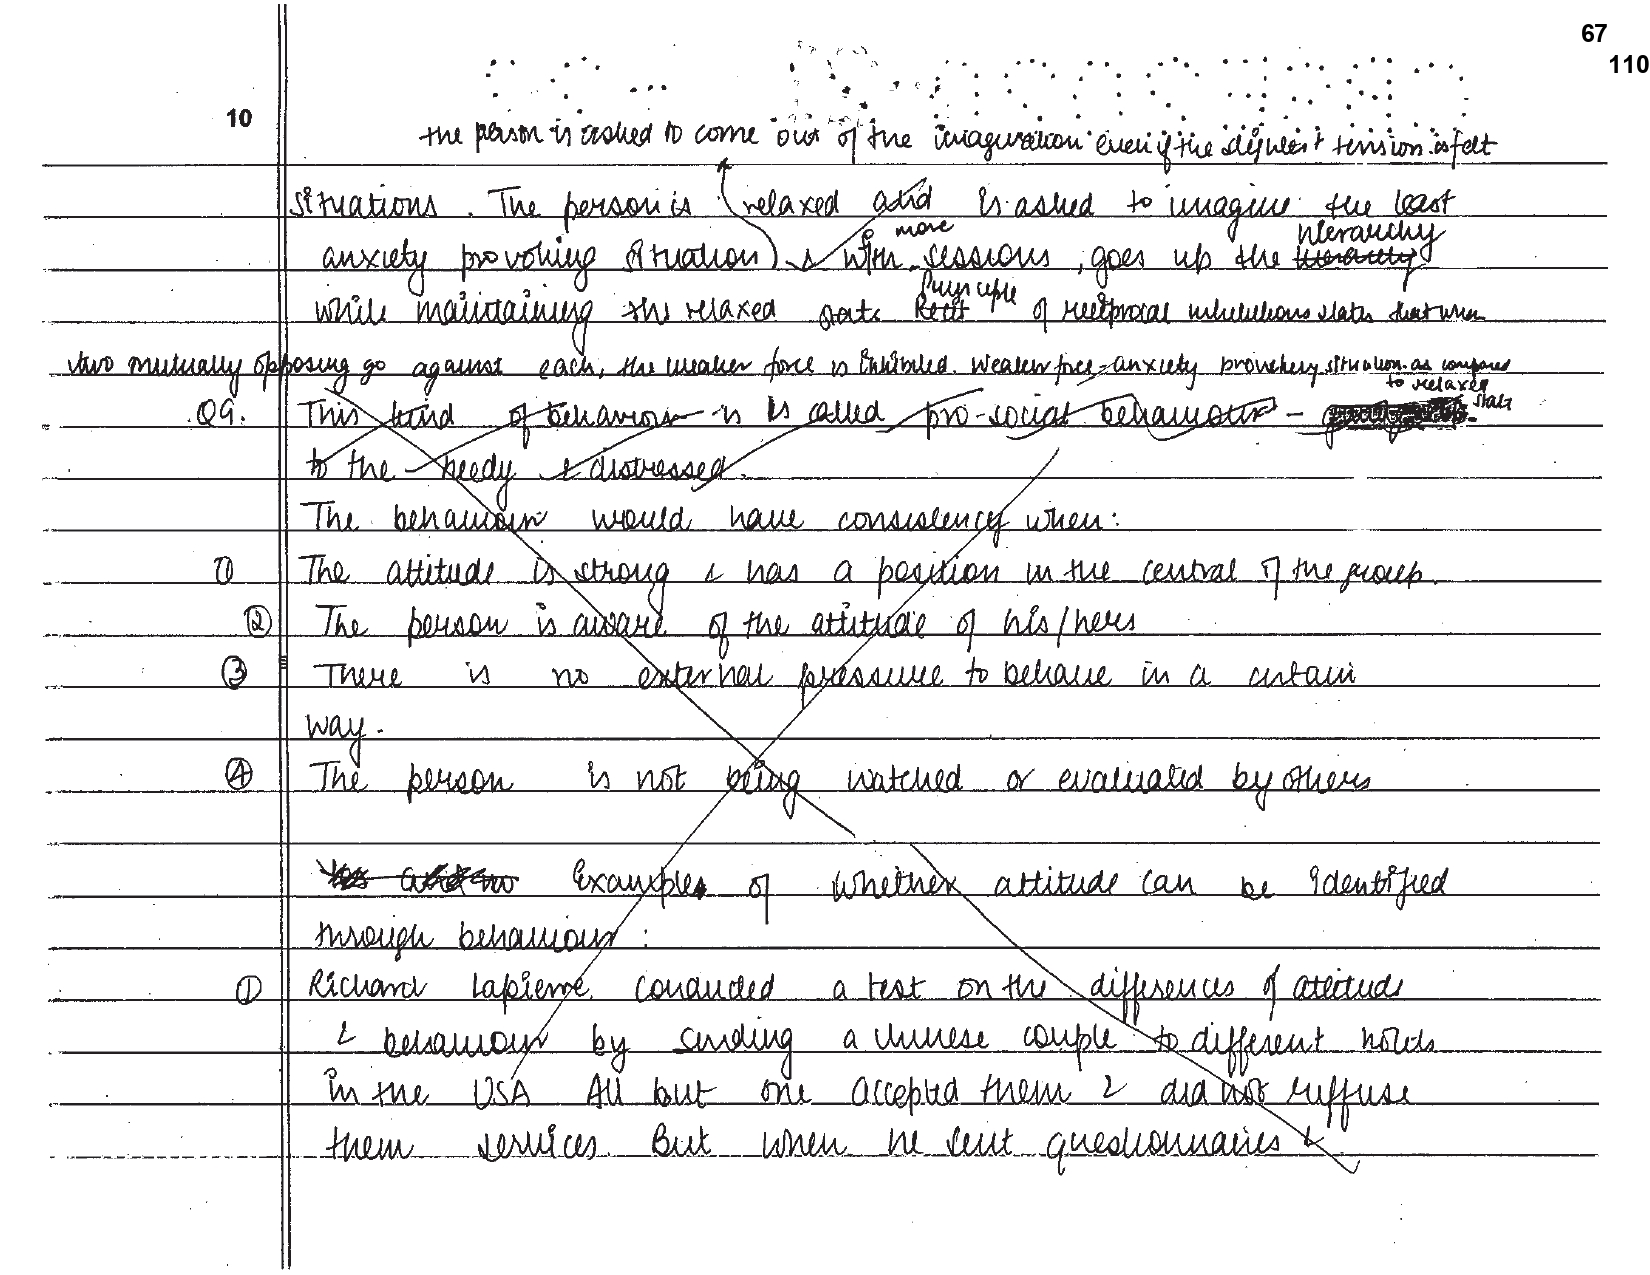 67
110
10
the person is asked to come out of the imagination even if the slightest tension is felt
situations. The person is relaxed and is asked to imagine the least
anxiety provoking situation) & with more sessions, goes up the hierarchy hierarchy
while maintaining the relaxed state. Principle of reciprocal inhibitions states that when
two mutually opposing go against each, the weaker force is Inhibited. Weaker force = anxiety provoking situation as compared
to relaxed state
Q9. This kind of behaviour is is called pro-social behaviour -
to the needy & distressed.
The behaviour would have consistency when:
1) The attitude is strong & has a position in the central of the group.
② The person is aware of the attitude of his/hers
③ There is no external pressure to behave in a certain
way.
④ The person is not being watched or evaluated by others
Examples of whether attitude can be identified
through behaviour:
① Richard Lapierre, conducted a test on the differences of attitude
& behaviour by sending a chinese couple to different hotels
in the USA All but one accepted them & did not reffuse
them services. But when he sent questionnaries &